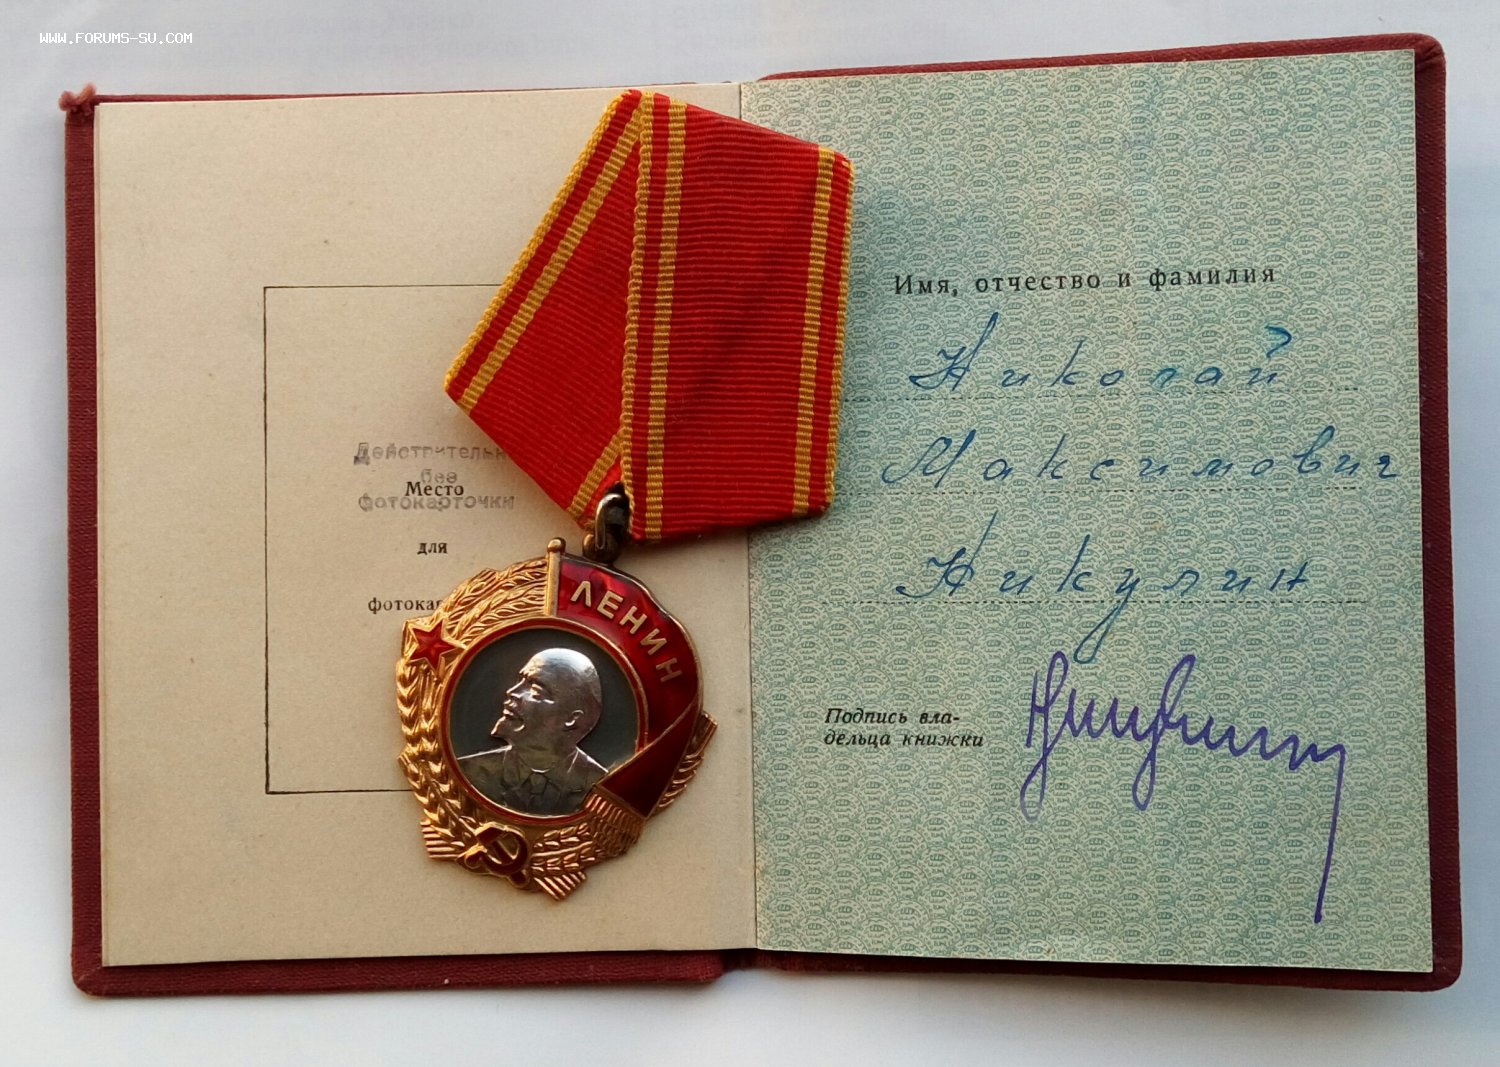 WWW.FORUMS-SU.COM
Действительн
без
фотокарточки
Место
для
фотока
ЛЕНИН
Имя, отчество и фамилия
Николай
Максимович
Никулин
Подпись вла-
дельца книжки